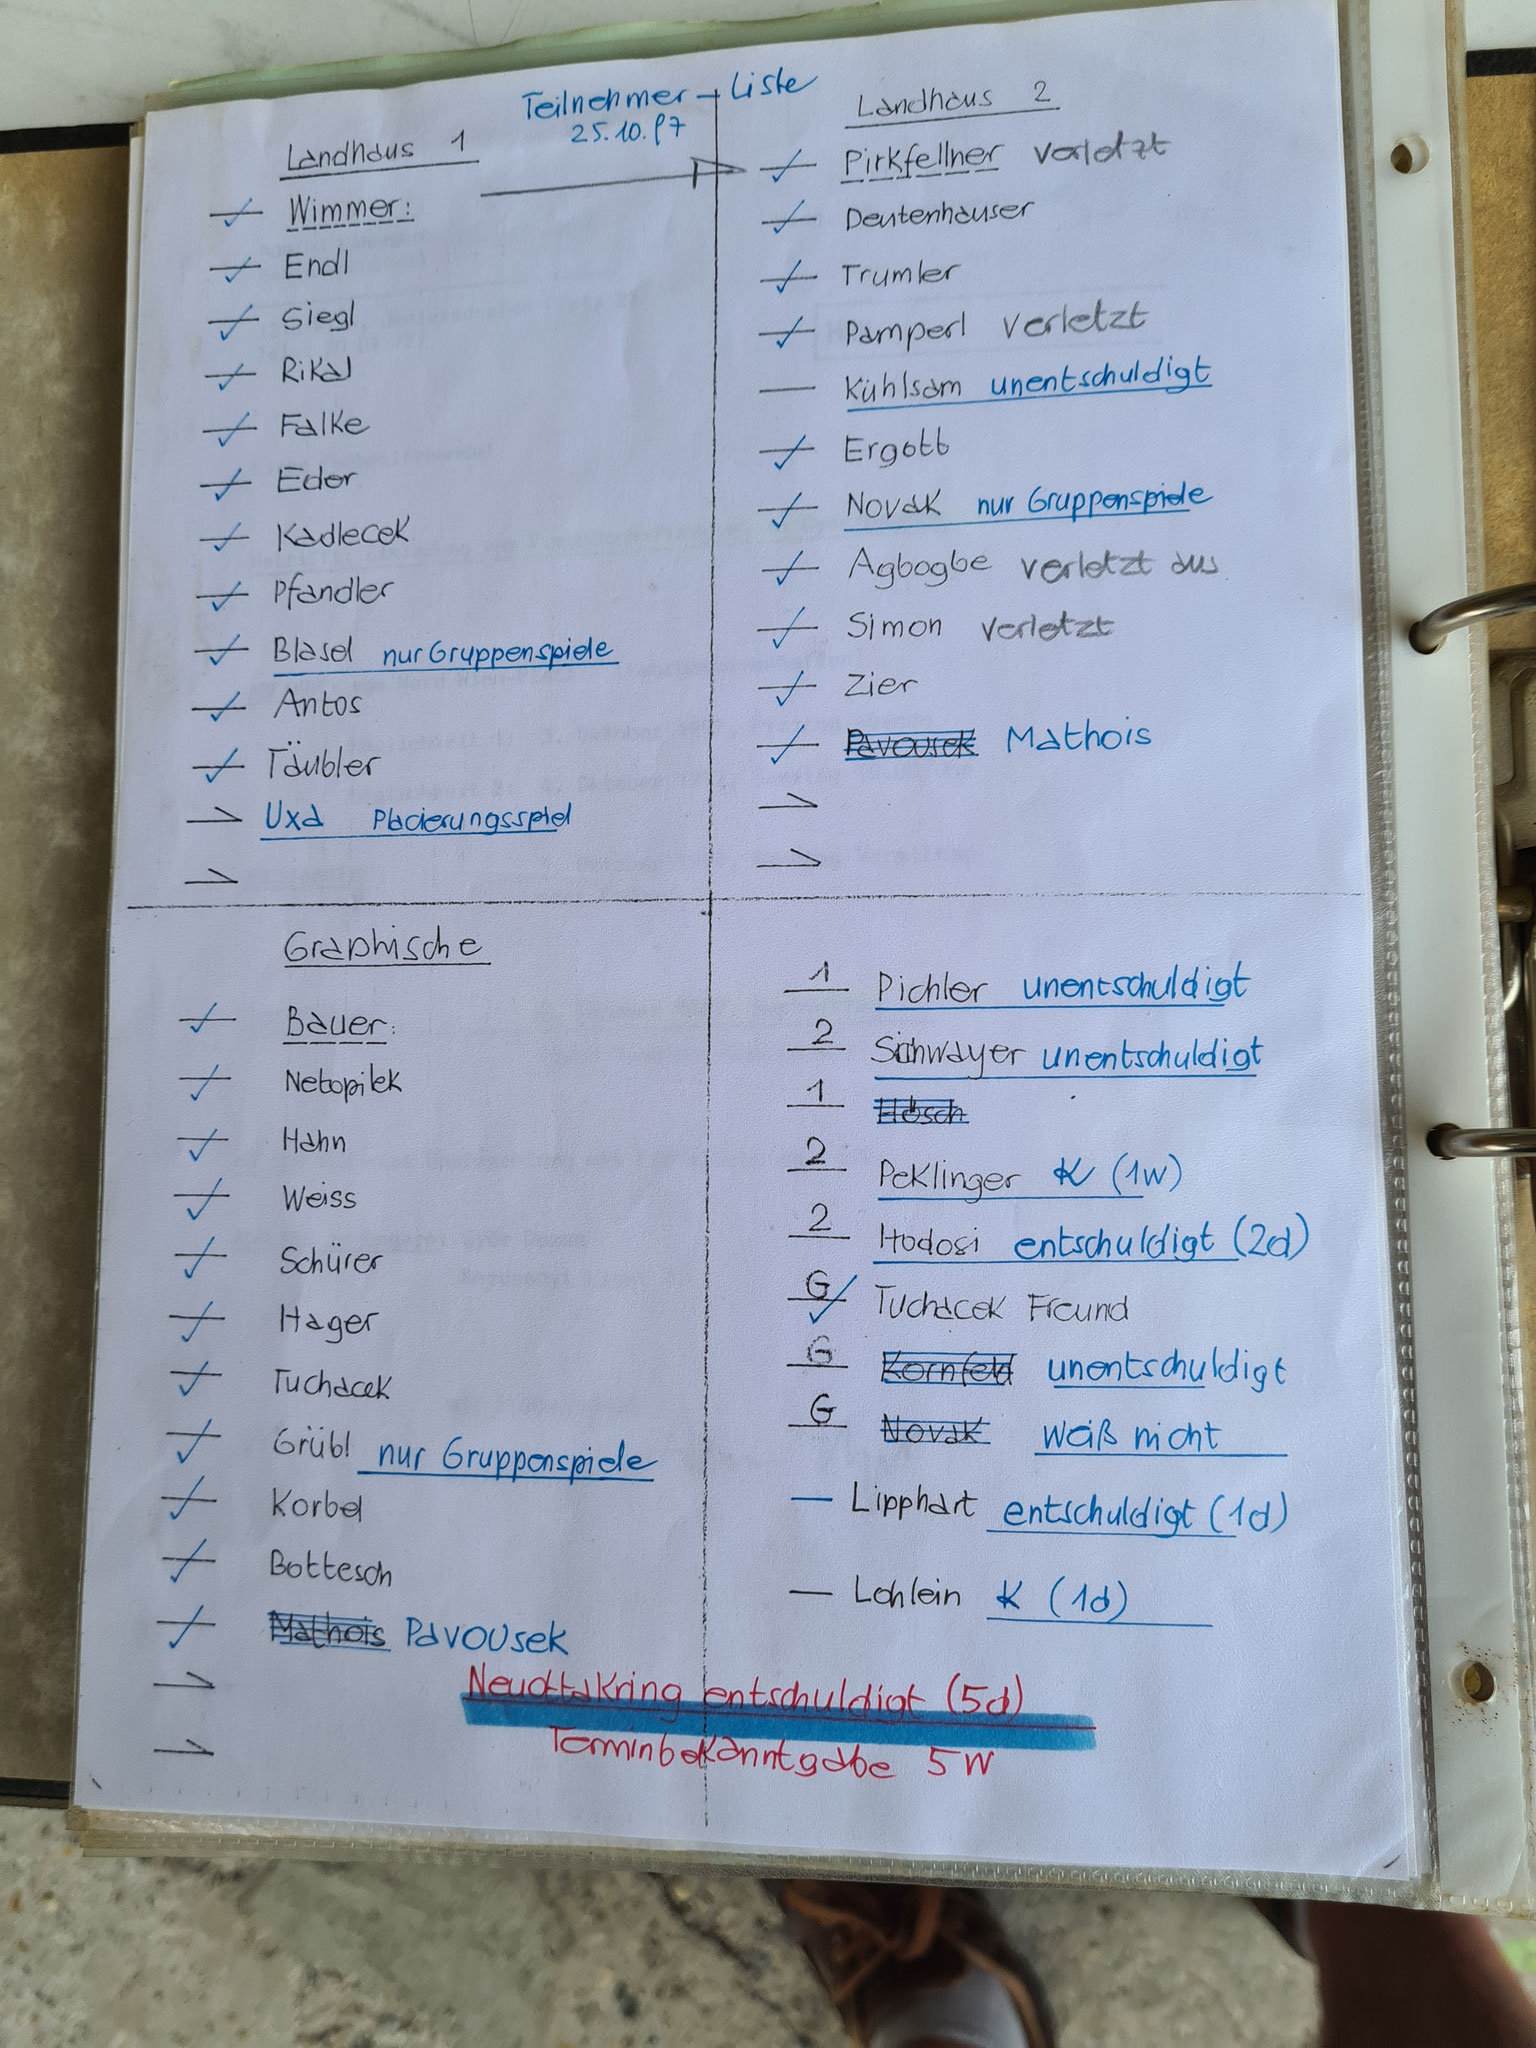 Teilnehmer - Liste
25.10.97
Landhaus 1
Wimmer:
Endl
Siegl
Rikal
Falke
Eder
Kadlecek
Pfandler
Blasel nur Gruppenspiele
Antos
Täubler
Uxa Placierungsspiel
Landhaus 2
Pirkfellner verletzt
Deutenhauser
Trumler
Pamperl verletzt
Kühlsam unentschuldigt
Ergott
Novak nur Gruppenspiele
Agbogbe verletzt aus
Simon verletzt
Zier
Pavousek Mathois
Graphische
Bauer:
Netopilek
Hahn
Weiss
Schürer
Hager
Tuchacek
Grübl nur Gruppenspiele
Korbel
Bottesch
Mathois Pavousek
1 Pichler unentschuldigt
2 Schwayer unentschuldigt
1 Hösch
2 Peklinger K (1W)
2 Hodosi entschuldigt (2d)
G Tuchacek Freund
G Kornfeld unentschuldigt
G Novak weiß nicht
Lipphart entschuldigt (1d)
Lohlein K (1d)
Neuottakring entschuldigt (5d)
Terminbekanntgabe 5W